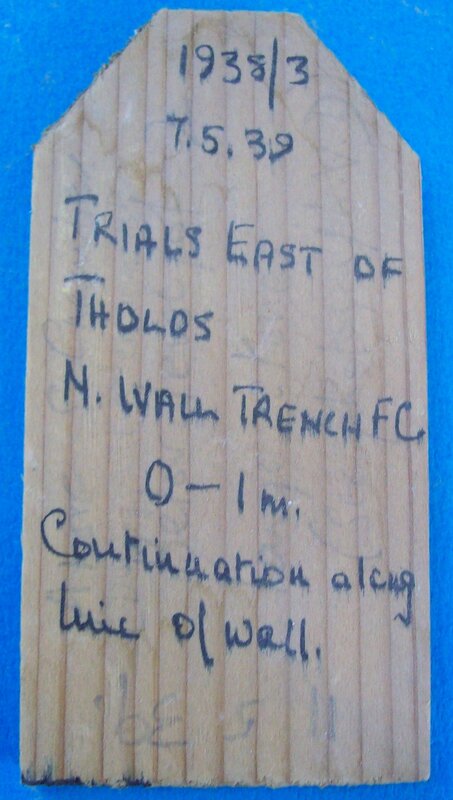 1938/3
7.5.39
TRIALS EAST OF
THOLOS
N. WALL TRENCH FC
0 – 1 m.
Continuation along
line of wall.